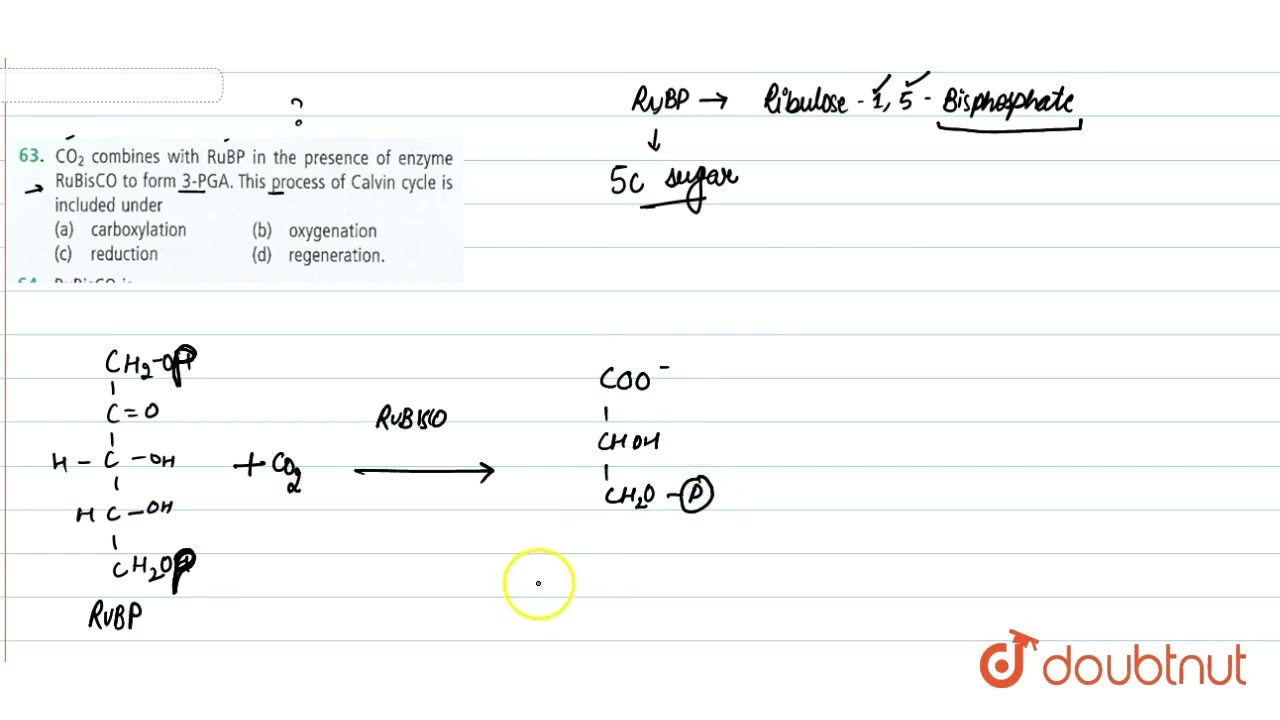 ?
63. CO₂ combines with RuBP in the presence of enzyme
RuBisCO to form 3-PGA. This process of Calvin cycle is
included under
(a) carboxylation (b) oxygenation
(c) reduction (d) regeneration.
RuBP → Ribulose - 1, 5 - Bisphosphate
↓
5c sugar
CH2-OP
C=O
H - C - OH
H C - OH
CH2OP
RuBP
+ CO2
RuBisCO
COO⁻
CHOH
CH2O - P
doubtnut